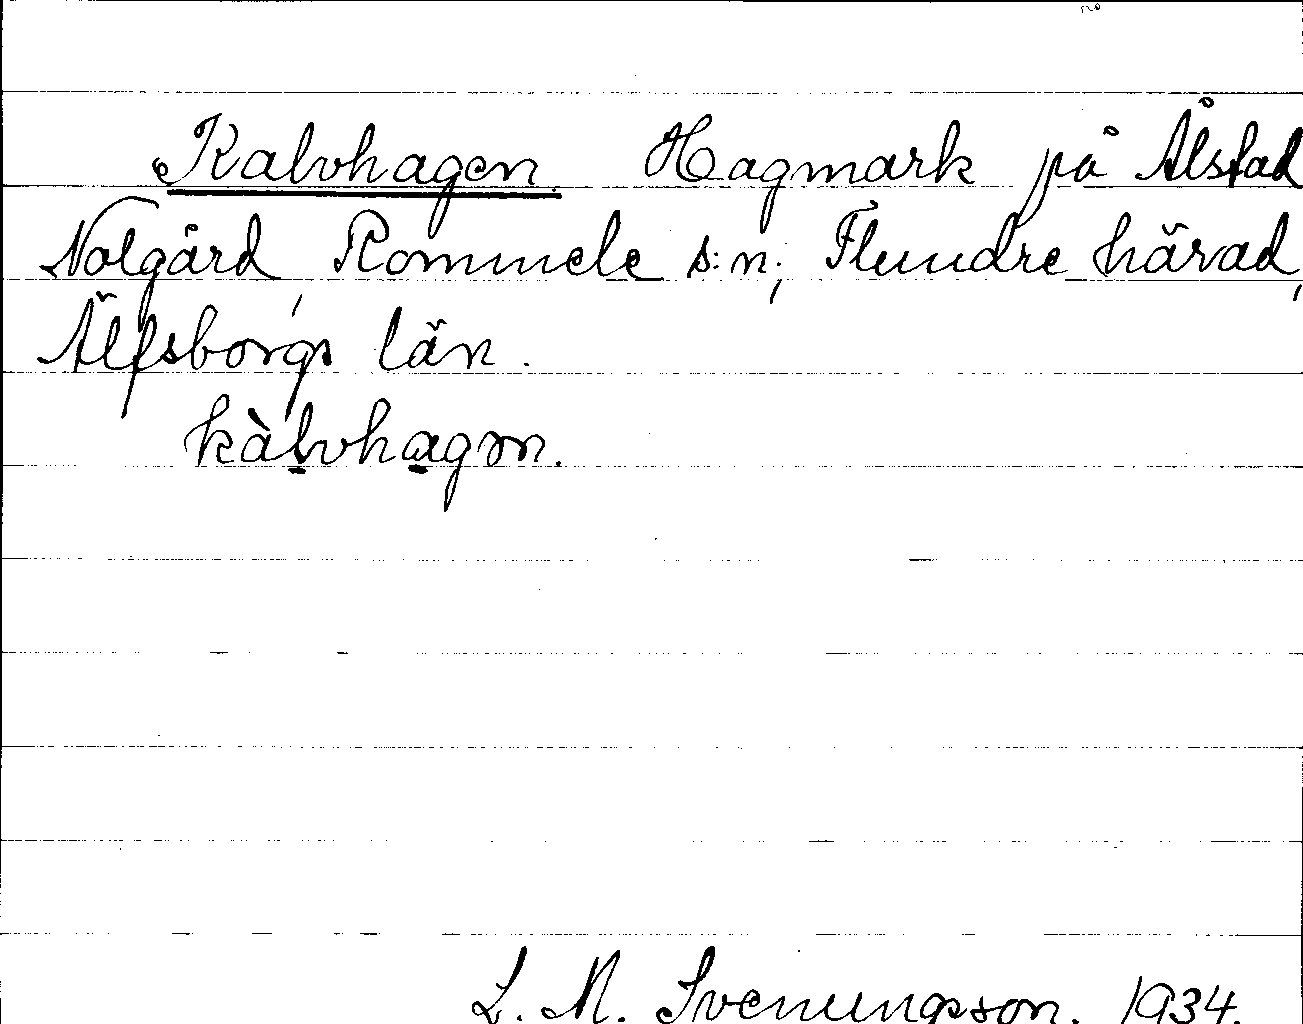 Kalvhagen. Hagmark på Ålstad
Nolgård Rommele s:n, Flundre härad,
Älfsborgs län.
kàlvhagən.
L. M. Svenungsson. 1934.